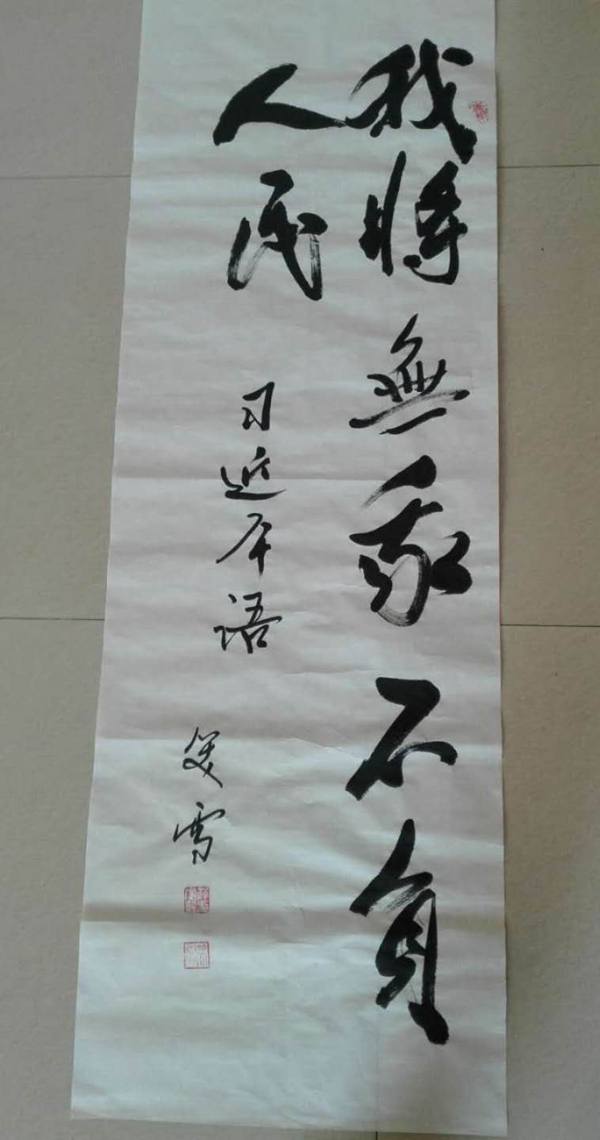 我將無我不負
人民
习近平语
雪